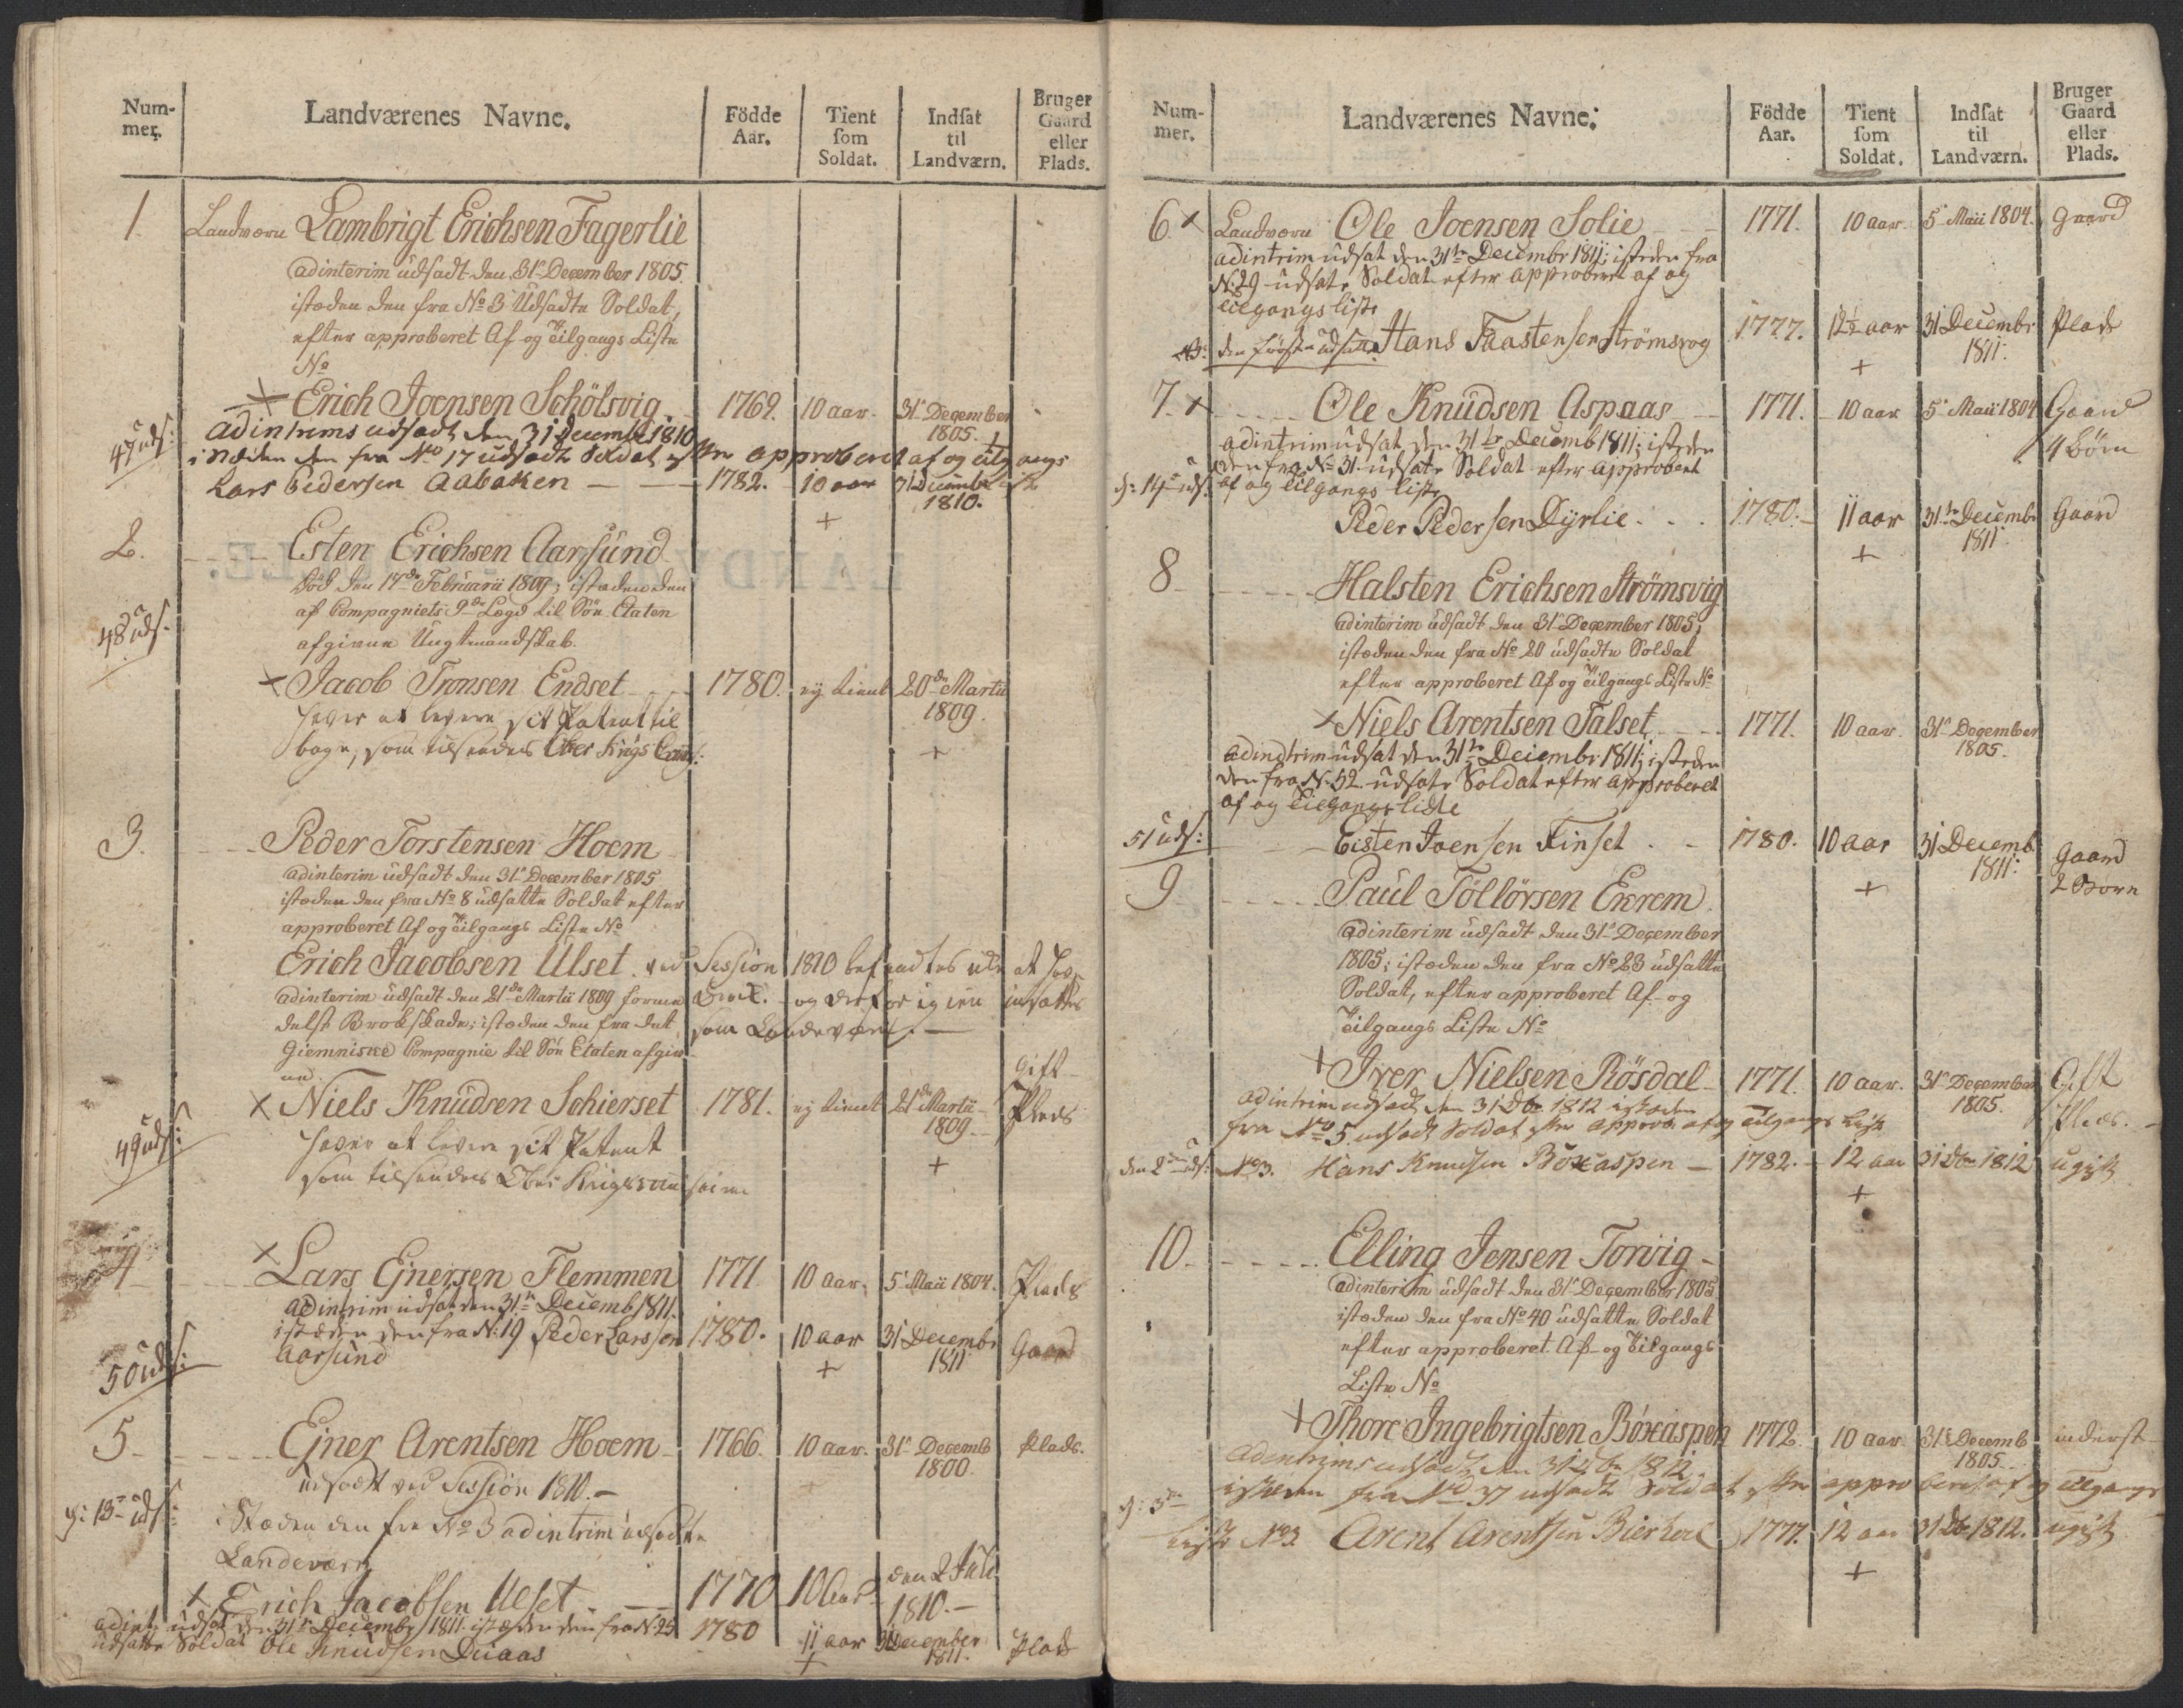 Num-
mer.
Landværenes Navne.
Födde
Aar.
Tient
som
Soldat.
Indsat
til
Landværn.
Bruger
Gaard
eller
Plads.
1.
Landværn Lambrigt Erichsen Fagerlie
adinterim udsadt den 31te December 1805.
istæden den fra No 3 Udsadte Soldat,
efter approberet Af og Tilgangs Liste
No
Erich Joensen Schölsvig. 1769. 10 aar. 31te December
1805.
47 uds:
adinterims udsadt den 31 Decembr 1810
istæden den fra No 17 udsadte Soldat efter approberet af og tilgangs
Lars Pedersen Aabakken 1782. 10 aar 31 Decembr
1810.
2.
Esten Erichsen Aarsund
Död den 17de Februarii 1809; istæden den
af Compagniets 9de Lægd til Söe Etaten
afgivne Ungtmandskab.
48 uds.
Jacob Tronsen Endset 1780. ey tient 20de Martii
1809.
haver at levere sit Patent til
bage, som tilsendes Ober Krigs
3.
Peder Torstensen Hoem
adinterim udsadt den 31te December 1805
istæden den fra No 8 udsatte Soldat efter
approberet Af og Tilgangs Liste No
Erich Jacobsen Ulset. ved Session 1810 befandtes at
adinterim udsadt den 21de Martii 1809 formedelst og derfor igien indsættes
delst Brokskade; istæden den fra det som Landeværn.
Giemniske Compagnie til Söe Etaten afgiv-
ne.
gift
Niels Knudsen Schierset 1781. ey tient 21de Martii Plads
1809.
49 uds:
haver at levere sit Patent
som tilsendes Ober Krigs
4
Lars Ejnersen Flemmen 1771. 10 aar. 5te Maii 1804. Plads
adintrim udsat den 31te Decemb 1811.
istæden den fra N: 19 Peder Larssen 1780. 10 aar 31 Decembr Gaard
Aarsund 1811
50 uds:
5
Ejner Arentsen Hoem 1766. 10 aar. 31te Decemb Plads.
1800.
udsadt ved Session 1810.
g: 13de uds:
istæden den fra No 3 adintrim udsadte
Landeværn
Erich Jacobsen Ulset 1770 10 Aar den 2 Juli
1810.
adint: udsat den 31te Decembr 1811 istæden den fra N: 25 1780 11 aar 31 December Plads
udsatte Soldat Ole Knudsen Duaas 1811.
Num-
mer.
Landværenes Navne.
Födde
Aar.
Tient
som
Soldat.
Indsat
til
Landværn.
Bruger
Gaard
eller
Plads.
6.
Landværn Ole Joensen Solie 1771. 10 aar. 5te Maii 1804. Gaard
adintrim udsat den 31te Decembr 1811; isteden fra
N: 29 udsatte Soldat efter approberet af og
tilgangs liste
den förste udsatte Hans Taastensen Strömsvog 1777. 12½ aar 31 Decembr Plads
1811.
7.
Ole Knudsen Aspaas 1771. 10 aar 5te Maii 1804 Gaard
4 Börn
adintrim udsat den 31te Decemb 1811; isteden
den fra No 31 udsatte Soldat efter approberet
g: 14de uds: af og tilgangs liste
Peder Pedersen Dyrlie 1780. 11 aar 31te Decembr Gaard
1811
8
Halsten Erichsen Strömsvig
adinterim udsadt den 31te December 1805;
istæden den fra No 20 udsadte Soldat
efter approberet Af og Tilgangs Liste No
Niels Arentsen Talset 1771. 10 aar. 31te December
1805.
adindtrim udsat den 31te Decembr 1811; isteden
den fra N: 32 udsatte Soldat efter approberet
af og tilgangs liste
51 uds:
Eisten Joensen Finset 1780. 10 aar 31 Decemb. Gaard
1811. 2 Börn
9
Paul Töllörsen Enrem.
adinterim udsadt den 31te December
1805; istæden den fra No 23 udsatte
Soldat, efter approberet Af- og
Tilgangs Liste No
Iver Nielsen Rösdal 1771. 10 aar. 31te December Gift
1805. Plads.
adintrim udsadt den 31 Dbr 1812 istæden
fra No 5 udsadt Soldat efter approb. af og tilgangs Liste
den 2den uds: No 3. Hans Knudsen Böxaspen 1782. 12 aar 31 Dbr 1812 ugift
10.
Elling Jensen Torvig
adinterim udsadt den 31te December 1805
istæden den fra No 40 udsatte Soldat
efter approberet Af- og Tilgangs
Liste No
Thore Ingebrigtsen Böxaspen 1772. 10 aar 31te Decemb inderst
1805.
adintrims udsadt den 31 Dbr 1812,
istæden fra No 37 udsadt Soldat efter approberet af og tilgangs
g: 3de
Liste No 3. Arent Arentsen 1777. 12 aar 31 Dbr 1812. ugift